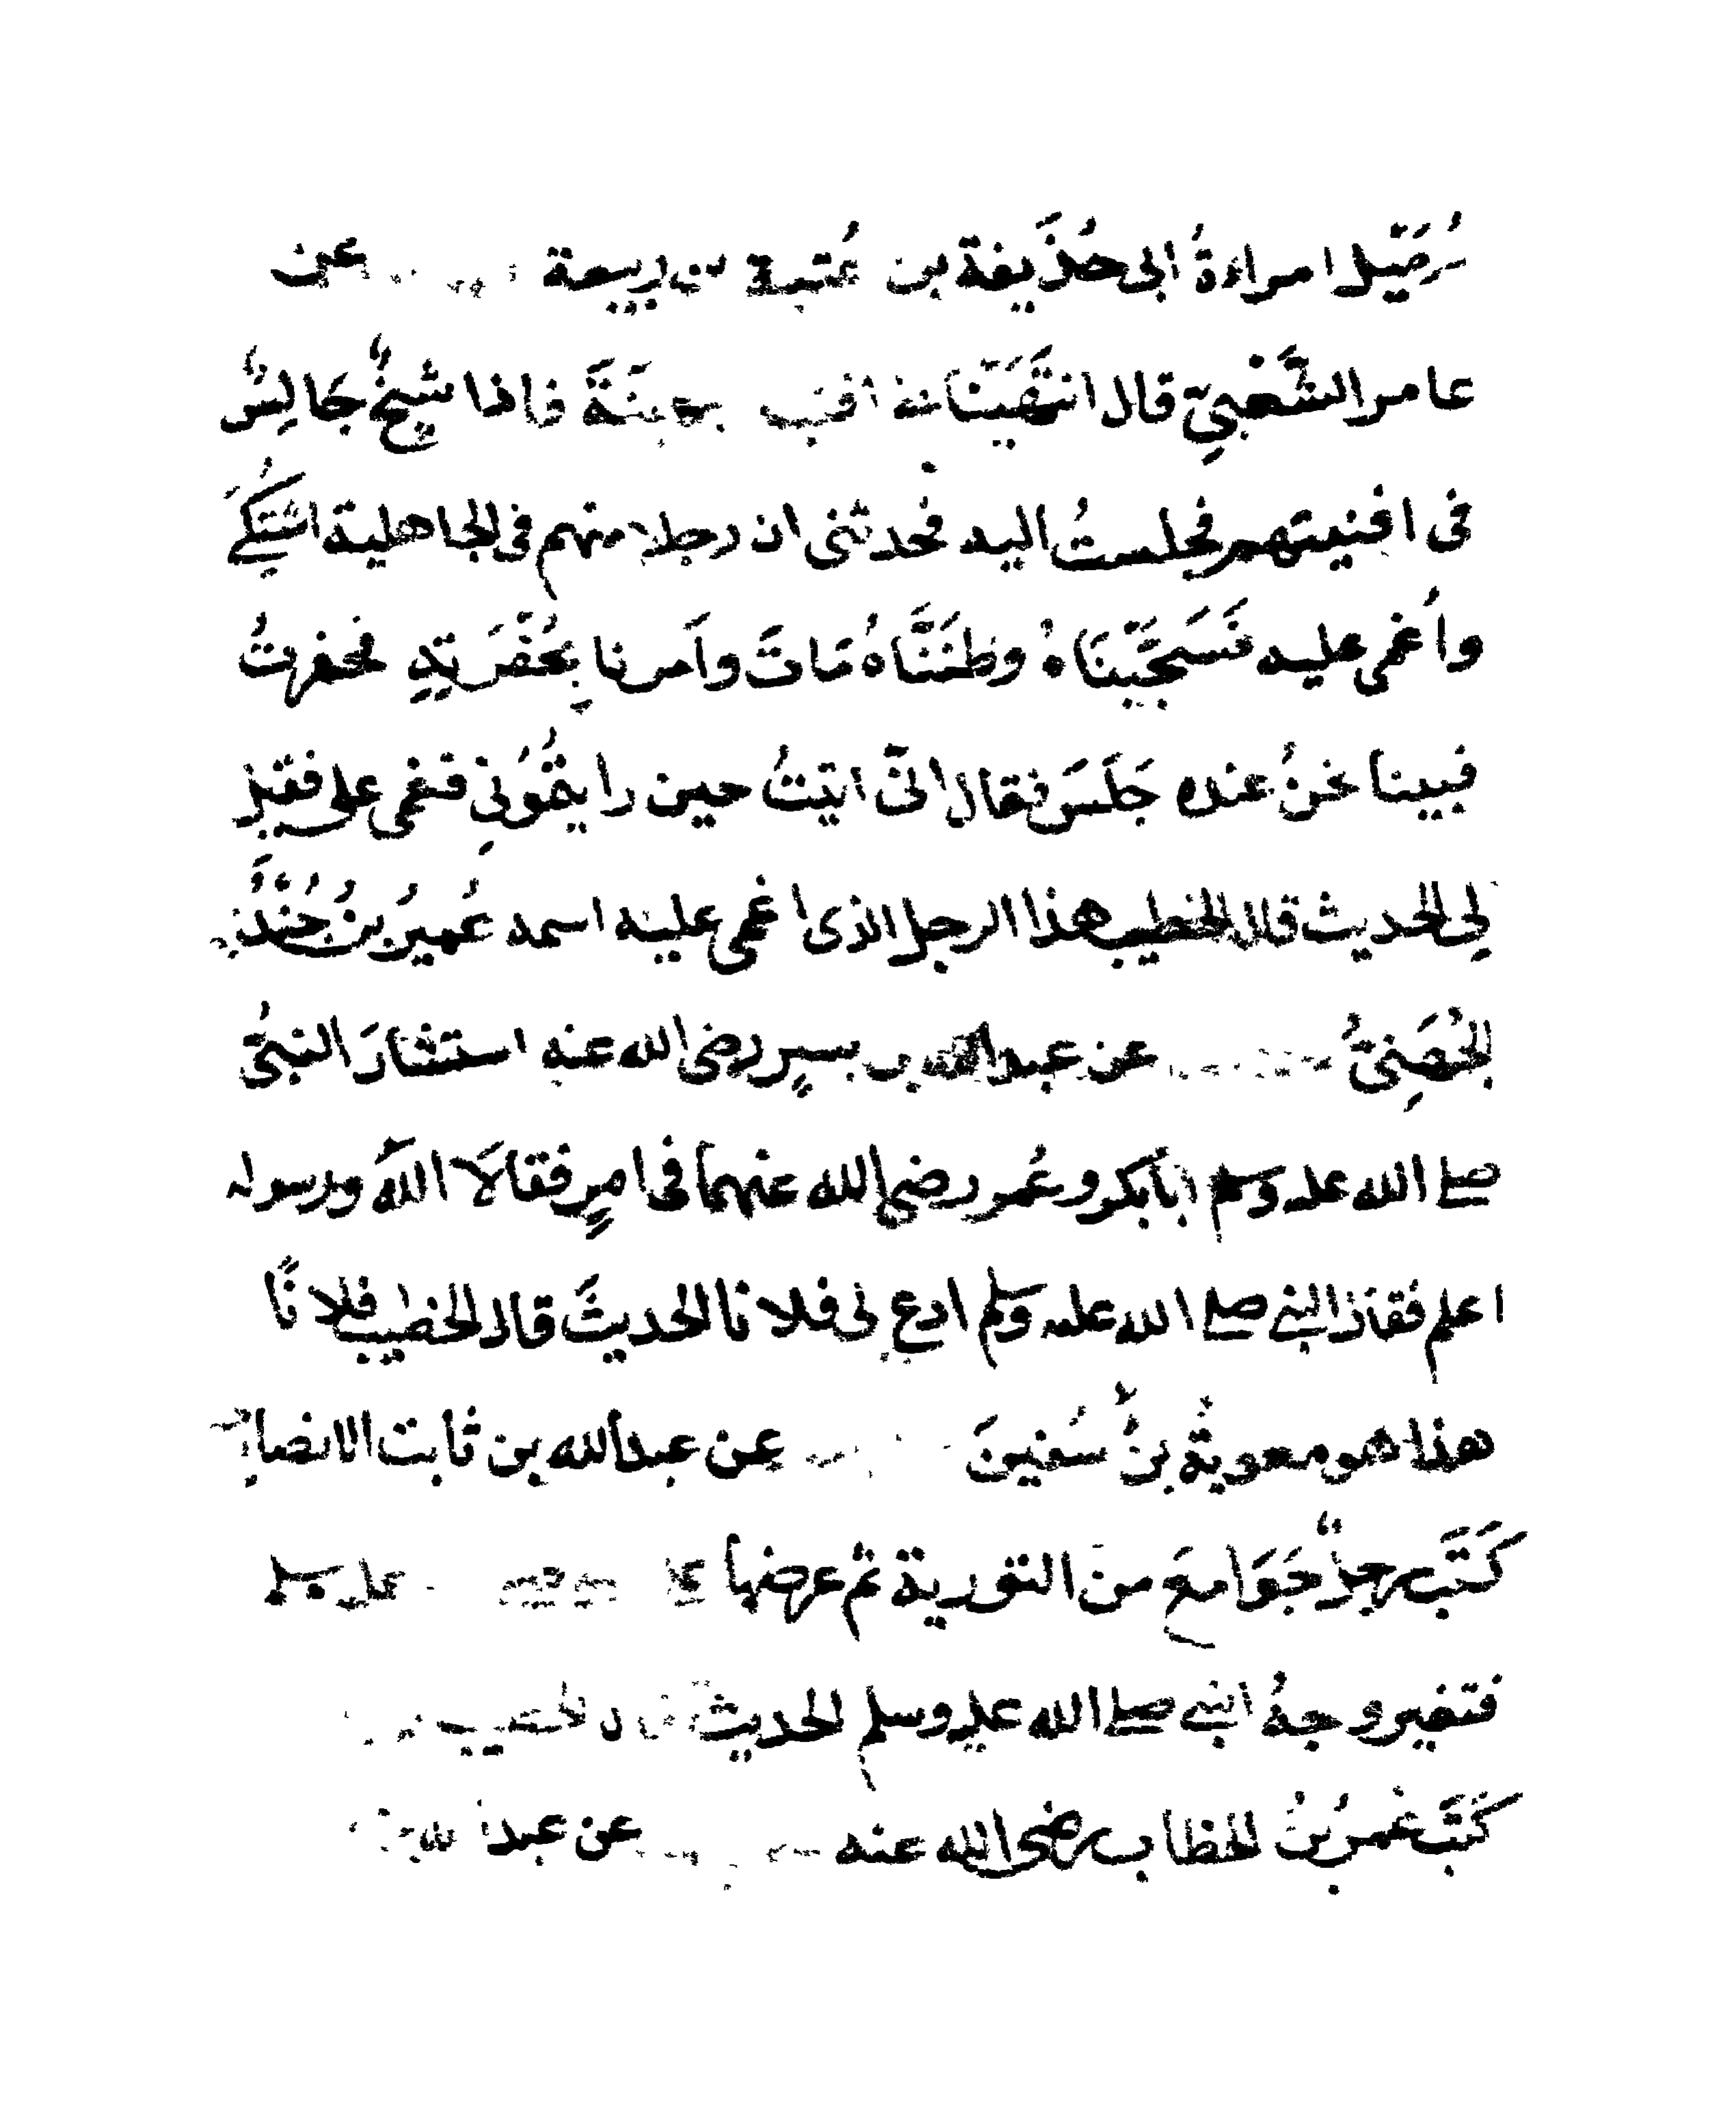 امراءةُ ابى حُذَيفة بن عُتبة بن ربيعة عن
عامر الشَّعْبىِّ قال انتَهَيْنَا فاذا شيخٌ جَالِسٌ
فى افنيتهم فجلستُ اليه فحدثنى ان رجلا منهم فى الجاهلية اشتكى
واُغمى عليه فَسَجَّيْنَاهُ وظَنَنَّاهُ مَاتَ واَمرنا بِحُفْرَتِهِ فحفرتُ
فبينا نحنُ عنده جَلَسَ فقال انّى اتيتُ حين رايتمُونِى اغمى على فقيل
لِى الحديث قال الخطيب هذا الرجل الذى اغمى عليه اسمه عُميرُ بنُ جُنْدُبٍ
الجُهَنِىُّ عن عبدالله بن بسرٍ رضى الله عنه استشارَ النبىُّ
صلى الله عليه وسلم اَبابكر وعُمر رضى الله عنهما فى امرٍ فقالاَ اللهُ ورسوله
اعلم فقال النبى صلى الله عليه وسلم ادعِ لى فلانا الحديثَ قال الخطيب فلانًا
هذا هو معوية بنُ عن عبدالله بن ثابت الانصارى
كَتَبَ رجلٌ جَوَامعَ من التورية ثم عرضها على عليه وسلم
فتغير وجهُ النبى صلى الله عليه وسلم الحديث قال الخطيب
كَتَبَ عُمرُ بنُ الخطاب رضى الله عنه عن عبدالله